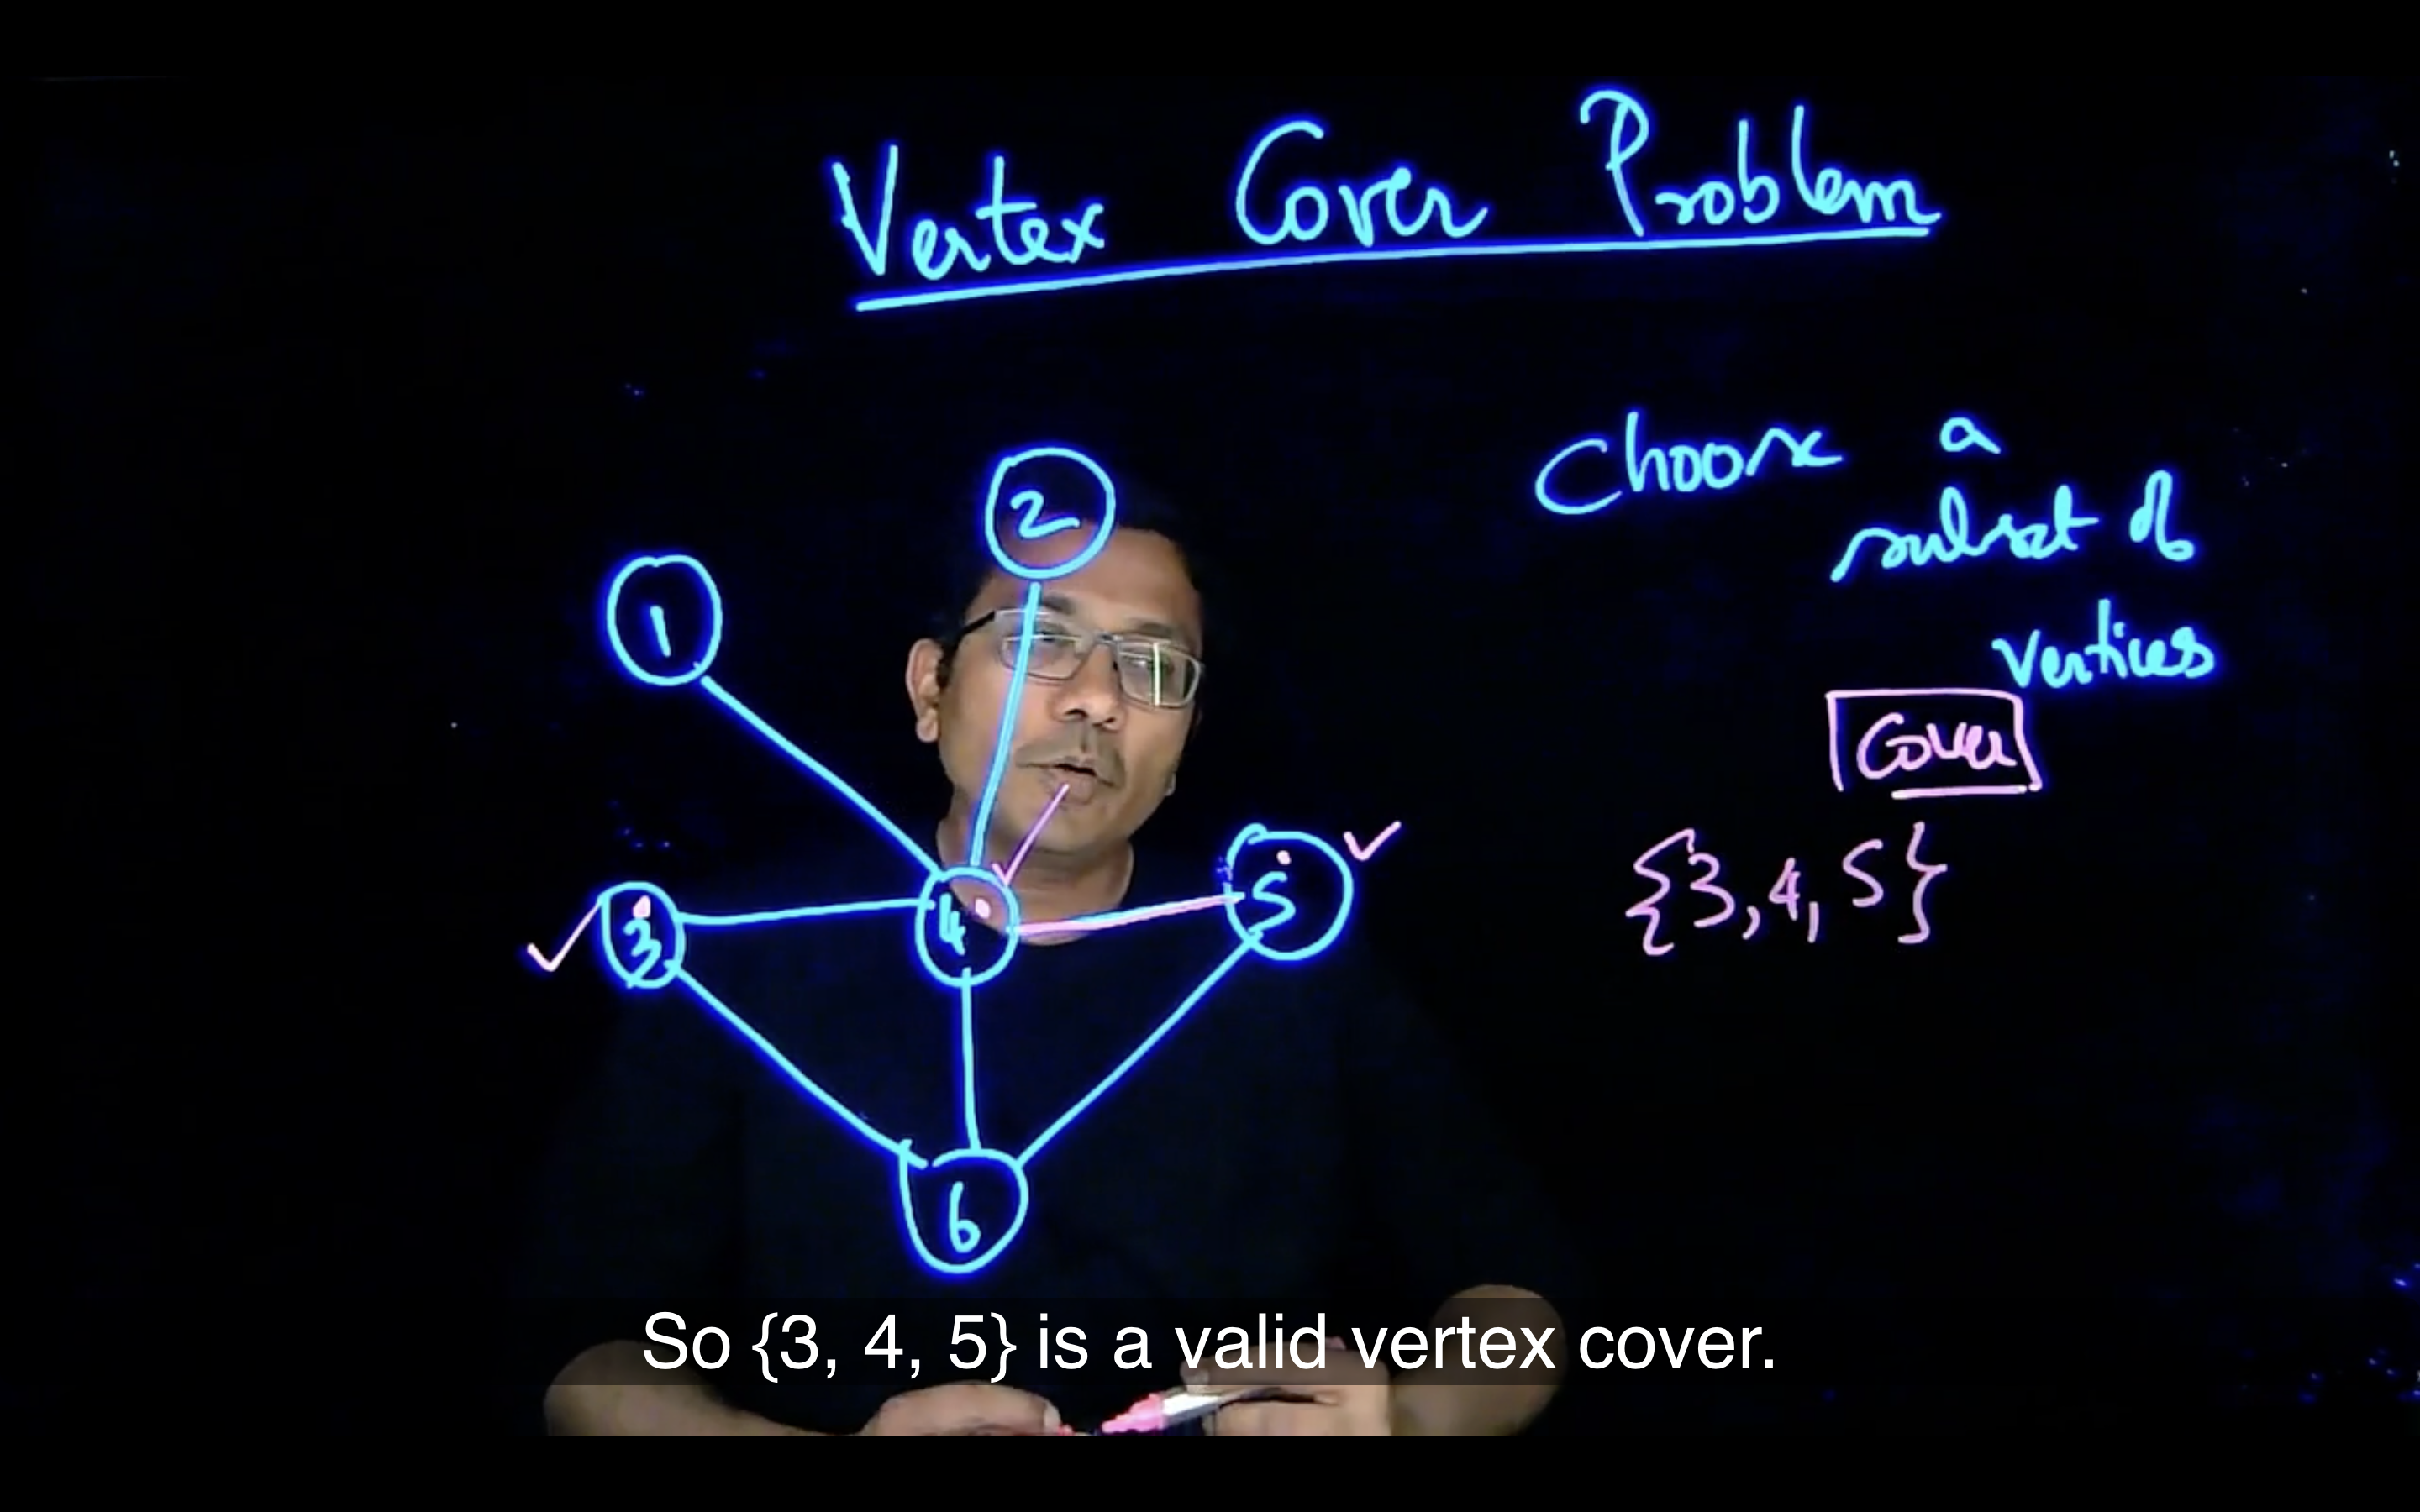 Vertex Cover Problem
Choose a
subset of
vertices
Cover
{3, 4, 5}
2
1
3
4
5
6
So {3, 4, 5} is a valid vertex cover.